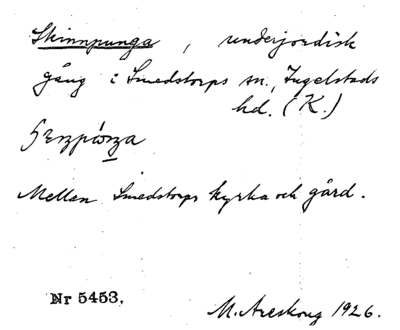 Skinnpunga, underjordisk
gång i Smedstorps sn., Ingelstads
hd. (K.)
Mellan Smedstorps kyrka och gård.
Nr 5453.
M. Areskoug 1926.